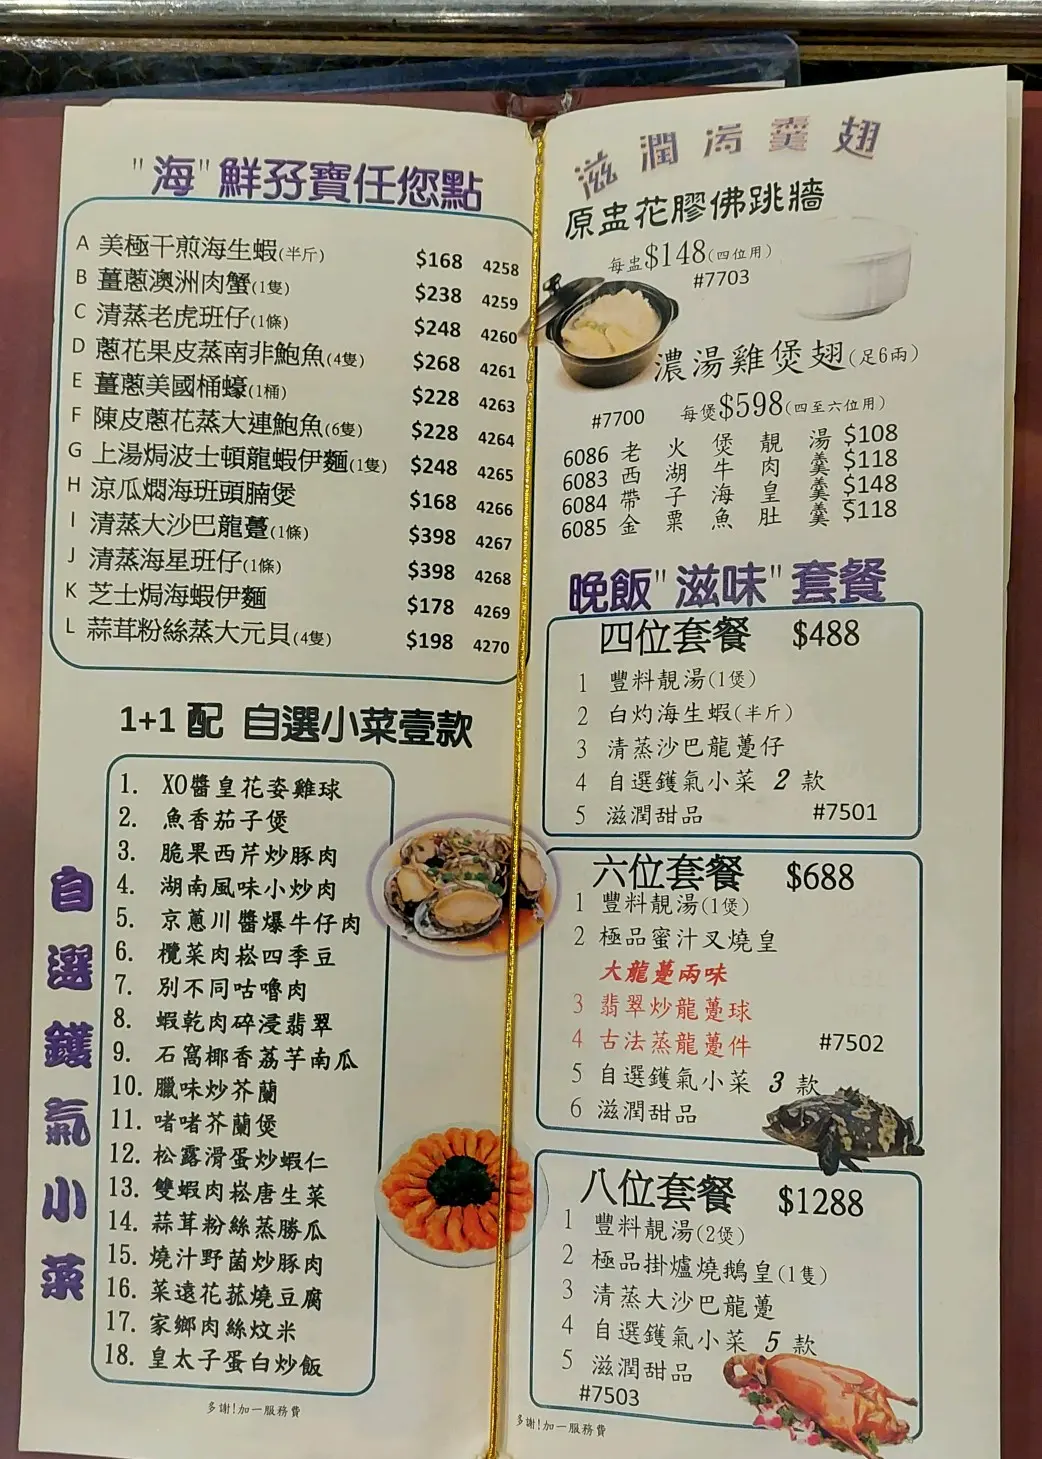 "海"鮮孖寶任您點
A 美極干煎海生蝦(半斤) $168 4258
B 薑蔥澳洲肉蟹(1隻) $238 4259
C 清蒸老虎班仔(1條) $248 4260
D 蔥花果皮蒸南非鮑魚(4隻) $268 4261
E 薑蔥美國桶蠔(1桶) $228 4263
F 陳皮蔥花蒸大連鮑魚(6隻) $228 4264
G 上湯焗波士頓龍蝦伊麵(1隻) $248 4265
H 涼瓜燜海班頭腩煲 $168 4266
I 清蒸大沙巴龍躉(1條) $398 4267
J 清蒸海星班仔(1條) $398 4268
K 芝士焗海蝦伊麵 $178 4269
L 蒜茸粉絲蒸大元貝(4隻) $198 4270
1+1 配 自選小菜壹款
自選鑊氣小菜
1. XO醬皇花姿雞球
2. 魚香茄子煲
3. 脆果西芹炒豚肉
4. 湖南風味小炒肉
5. 京蔥川醬爆牛仔肉
6. 欖菜肉崧四季豆
7. 別不同咕嚕肉
8. 蝦乾肉碎浸翡翠
9. 石窩椰香荔芋南瓜
10. 臘味炒芥蘭
11. 啫啫芥蘭煲
12. 松露滑蛋炒蝦仁
13. 雙蝦肉崧唐生菜
14. 蒜茸粉絲蒸勝瓜
15. 燒汁野菌炒豚肉
16. 菜遠花菰燒豆腐
17. 家鄉肉絲炆米
18. 皇太子蛋白炒飯
多謝!加一服務費
滋潤湯羹翅
原盅花膠佛跳牆
每盅$148(四位用)
#7703
濃湯雞煲翅(足6兩)
#7700 每煲$598(四至六位用)
6086 老火煲靚湯 $108
6083 西湖牛肉羹 $118
6084 帶子海皇羹 $148
6085 金粟魚肚羹 $118
晚飯"滋味"套餐
四位套餐 $488
1 豐料靚湯(1煲)
2 白灼海生蝦(半斤)
3 清蒸沙巴龍躉仔
4 自選鑊氣小菜 2 款
5 滋潤甜品 #7501
六位套餐 $688
1 豐料靚湯(1煲)
2 極品蜜汁叉燒皇
大龍躉兩味
3 翡翠炒龍躉球
4 古法蒸龍躉件 #7502
5 自選鑊氣小菜 3 款
6 滋潤甜品
八位套餐 $1288
1 豐料靚湯(2煲)
2 極品掛爐燒鵝皇(1隻)
3 清蒸大沙巴龍躉
4 自選鑊氣小菜 5 款
5 滋潤甜品
#7503
多謝!加一服務費